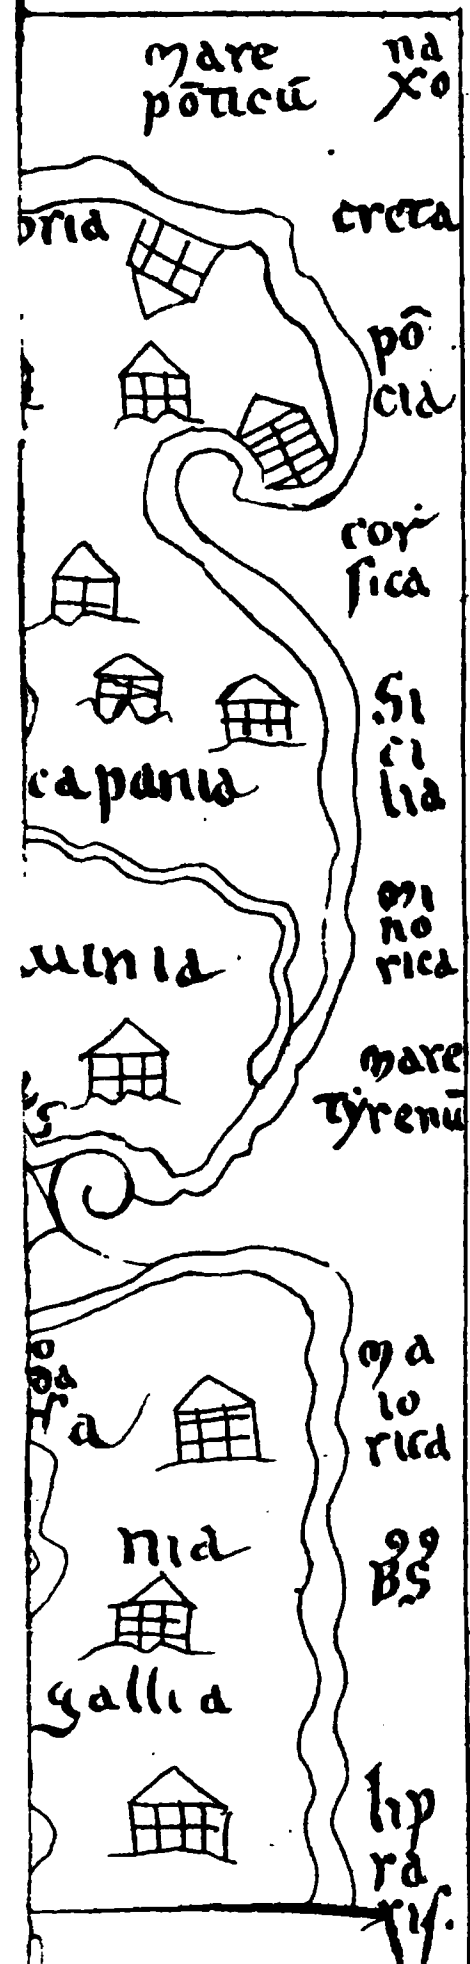 mare
pōticū
na
xo
creta
oria
pō
cia
cor
sica
Si
ci
lia
capania
mi
no
rica
uinia
mare
tyrenū
ma
io
rica
nia
gallia
lip
ra
ris.